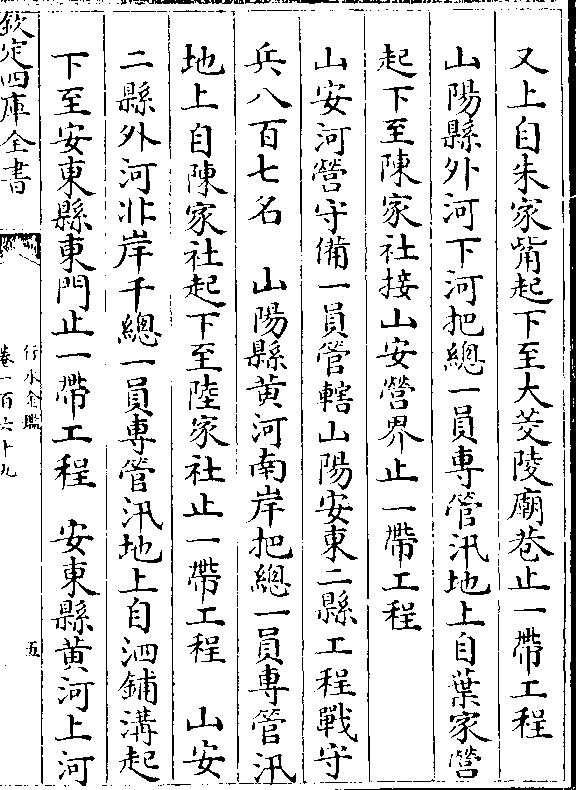 又上自朱家觜起下至大茭陵廟巷止一帶工程
山陽縣外河下河把總一員專管汛地上自葉家營
起下至陳家社接山安營界止一帶工程
山安河營守備一員管轄山陽安東二縣工程戰守
兵八百七名　山陽縣黄河南岸把總一員專管汛
地上自陳家社起下至陸家社止一帶工程　山安
二縣外河北岸千總一員專管汛地上自泗鋪溝起
下至安東縣東門止一帶工程　安東縣黄河上河
欽定四庫全書
行水金鑑
卷一百六十九
五